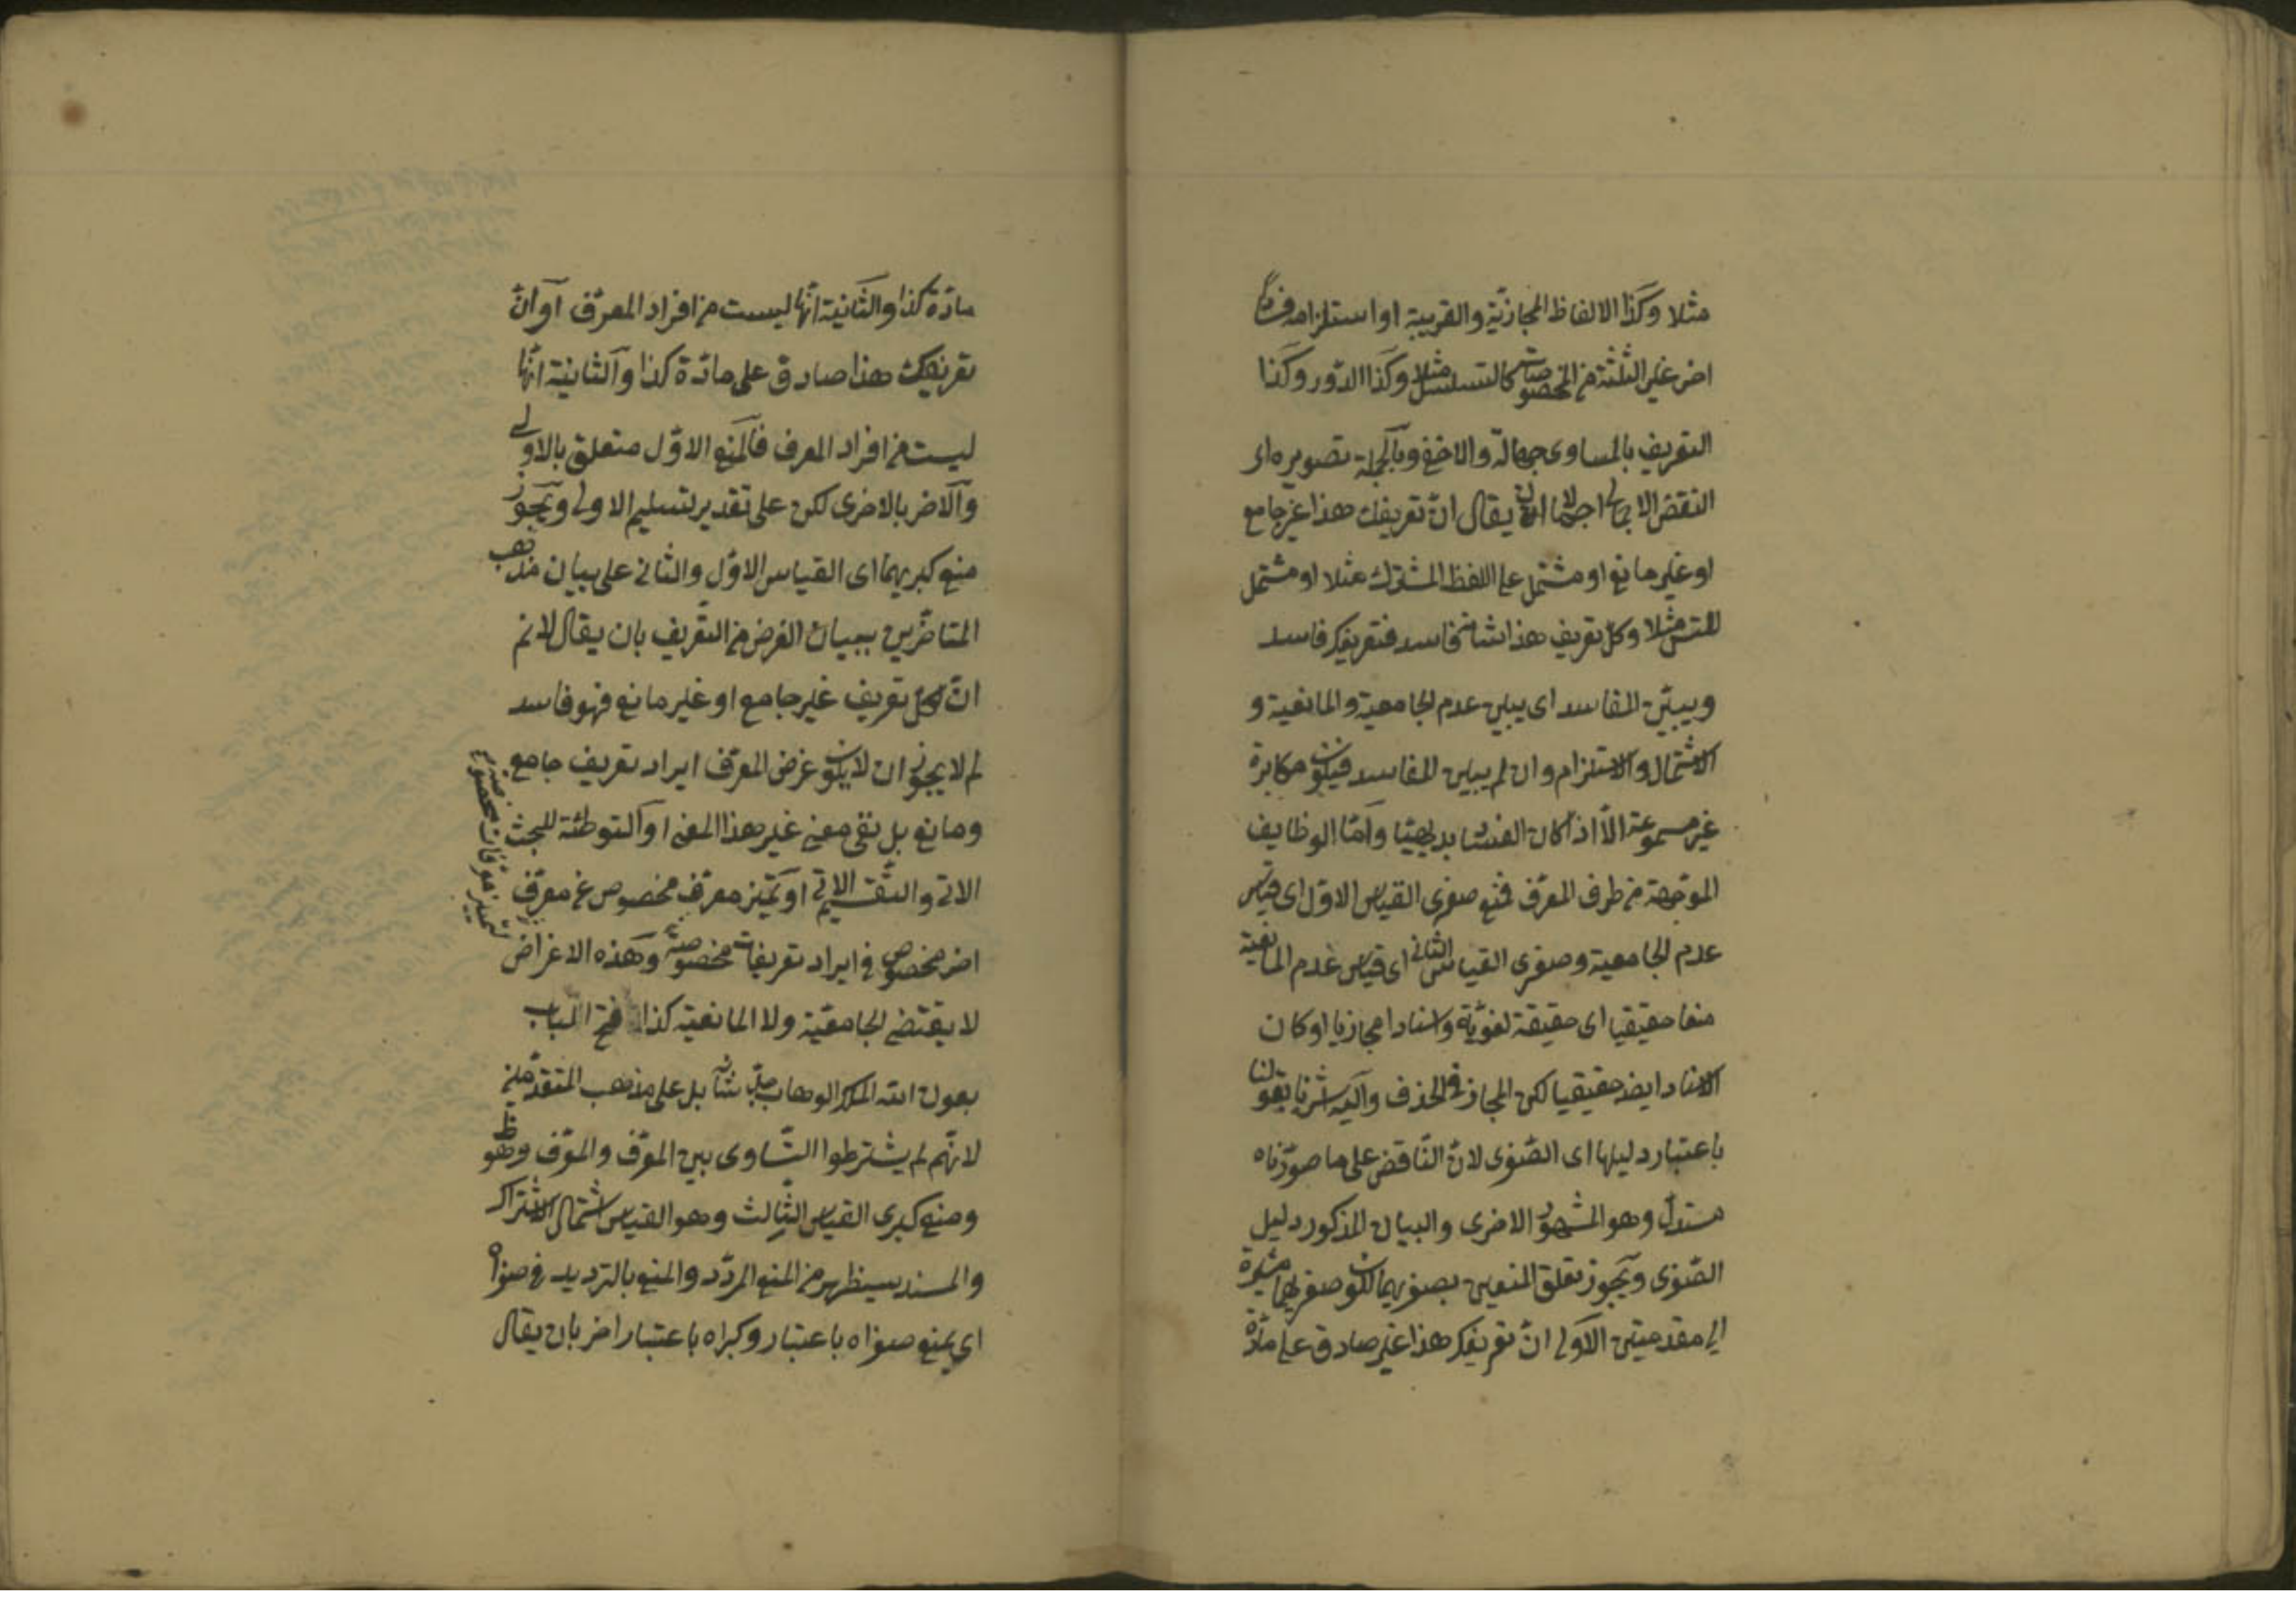 مثلا وكذا الالفاظ المجازيّة والغريبة او استلزامه فسادا
اخر غير الثلثة من المخصوصات كالتسلسل مثلا وكذا الدّور وكذا
التعريف بالمساوى جهالة والاخفى وبالجملة تصويره اى
النقض الاجمالى اجمالا ان يقال انّ تعريفك هذا غير جامع
او غير مانع او مشتمل على اللفظ المشترك مثلا او مشتمل
للتس مثلا وكل تعريف هذا شانه فاسد فتعريفك فاسد
ويبيّن المفاسد اى يبين عدم الجامعية والمانعية و
الاشتمال والاستلزام وان لم يبين المفاسد فيكون مكابرة
غير مسموعة الّا اذا كان الفساد بديهيّا وامّا الوظايف
الموجّهة من طرف المعرّف فمنع صغرى القياس الاوّل اى قياس
عدم الجامعية وصغرى القياس الثانى اى قياس عدم المانعية
منعا حقيقيا اى حقيقة لغويّة واسنادا مجازيا او كان
الاسناد ايضا حقيقيا لكن المجاز فى الحذف واليه اشرنا بقولنا
باعتبار دليلها اى الصّغرى لانّ النّاقض على ما صوّرناه
مستدل وهو المشهور الاخرى والبيان المذكور دليل
الصّغرى ويجوز تعلق المنعين بصغريهما لكون صغريهما مشيرة
الى مقدميتين الاولى انّ تعريفك هذا غير صادق على مادّة
مادّة كذا والثّانية انّها ليست من افراد المعرّف او انّ
تعريفك هذا صادق على مادّة كذا والثانية انّها
ليست من افراد المعرف فالمنع الاوّل متعلق بالاولى
والاخر بالاخرى لكن على تقدير تسليم الاولى ويجوز
منع كبريهما اى القياس الاوّل والثانى على بيان مذهب
المتاخّرين ببيان الغرض من التّعريف بان يقال لا نم
انّ كل تعريف غير جامع او غير مانع فهو فاسد
لم لا يجوز ان لا يكون غرض المعرّف ايراد تعريف جامع
ومانع بل نفى معنى غير هذا المعنى او التوطئة للبحث
الاتى والتّقسيم الاتى او تميّز معرّف مخصوص عن معرّف
اخر مخصوص فى ايراد تعريفات مخصوصة وهذه الاغراض
لا يقتضى الجامعيّة ولا المانعية كذا فتح الباب
بعون الله الملك الوهاب جلّ شانه بل على مذهب المتقدّمين
لانّهم لم يشترطوا التّساوى بين المعرّف والمعرّف وهو ظ
ومنع كبرى القياس الثّالث وهو القياس اشتمال الاشتراك
والمسند سيظهر من المنع المردّد والمنع بالترديد فى صغراه
اى يمنع صغراه باعتبار وكبراه باعتبار اخر بان يقال